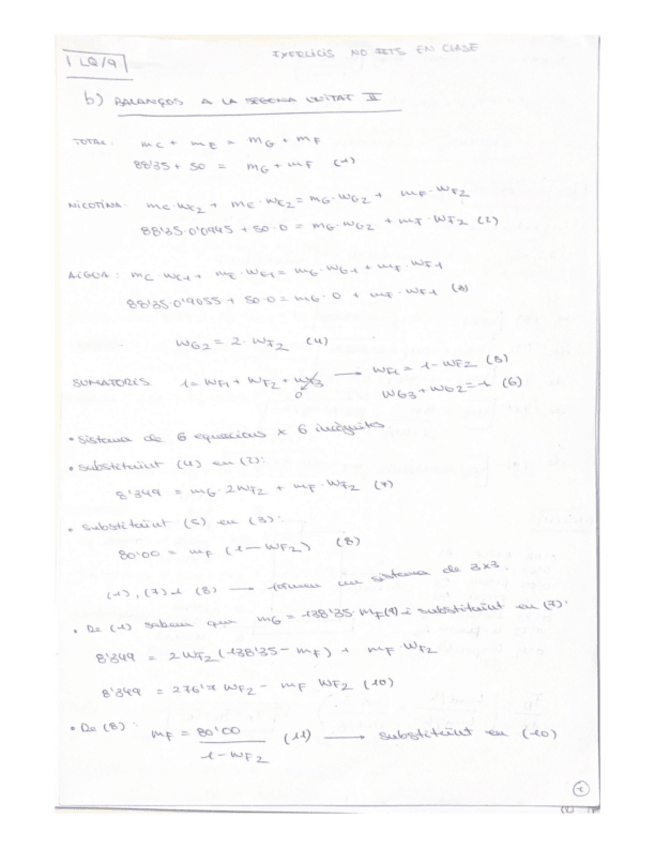 EXERCICIS NO FETS EN CLASE
1 LQ/9
b) BALANÇOS A LA SEGONA UNITAT II
TOTAL: mC + mE = mG + mF
88'35 + 50 = mG + mF (1)
NICOTINA: mC·WC2 + mE·WE2 = mG·WG2 + mF·WF2
88'35·0'0945 + 50·0 = mG·WG2 + mF·WF2 (2)
AIGUA: mC·WC1 + mE·WE1 = mG·WG1 + mF·WF1
88'35·0'9055 + 50·0 = mG·0 + mF·WF1 (3)
WG2 = 2·WF2 (4)
SUMATORIS 1 = WF1 + WF2 + WF3 → WF1 = 1 - WF2 (5)
0 WG3 + WG2 = 1 (6)
• Sistema de 6 equacions x 6 incògnites
• substituint (4) en (2):
8'349 = mG·2WF2 + mF·WF2 (7)
• substituint (5) en (3):
80'00 = mF (1 - WF2) (8)
(1), (7) i (8) → formen un sistema de 3x3.
• De (1) sabem que mG = 138'35 - mF (9) i substituint en (7):
8'349 = 2WF2 (138'35 - mF) + mF·WF2
8'349 = 276'7 WF2 - mF WF2 (10)
• De (8): mF = 80'00 / 1 - WF2 (11) → substituint en (10)